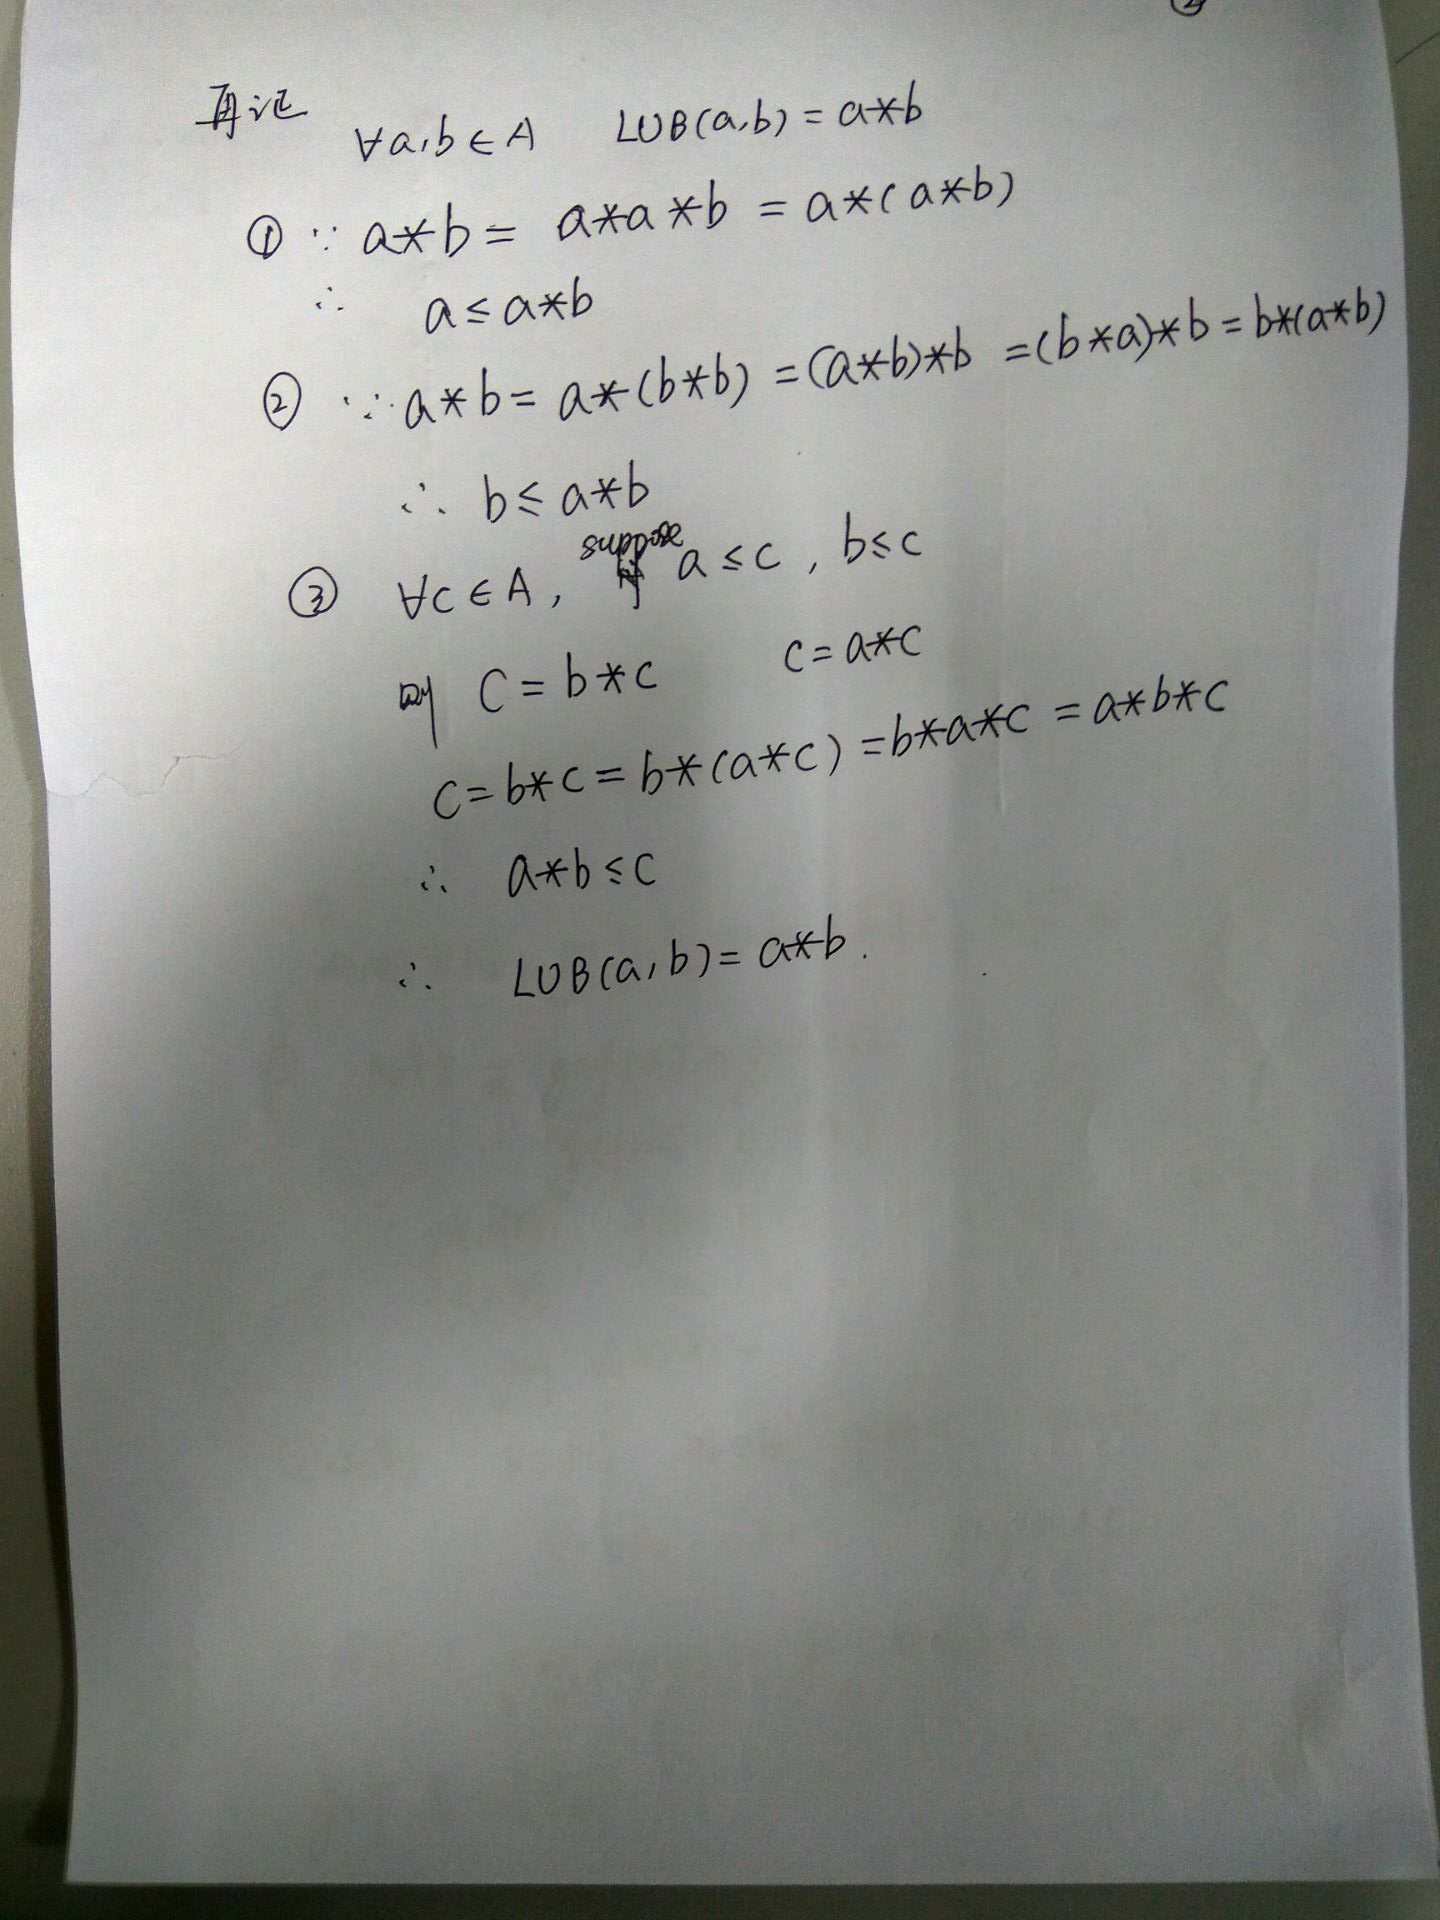 ②
再证
∀a,b∈A LUB(a,b)=a*b
① ∵ a*b = a*a*b = a*(a*b)
∴ a≤a*b
② ∵ a*b = a*(b*b) =(a*b)*b =(b*a)*b = b*(a*b)
∴ b≤a*b
suppose
③ ∀c∈A, a≤c, b≤c
则 c=b*c c=a*c
c=b*c=b*(a*c)=b*a*c=a*b*c
∴ a*b≤c
∴ LUB(a,b)=a*b.